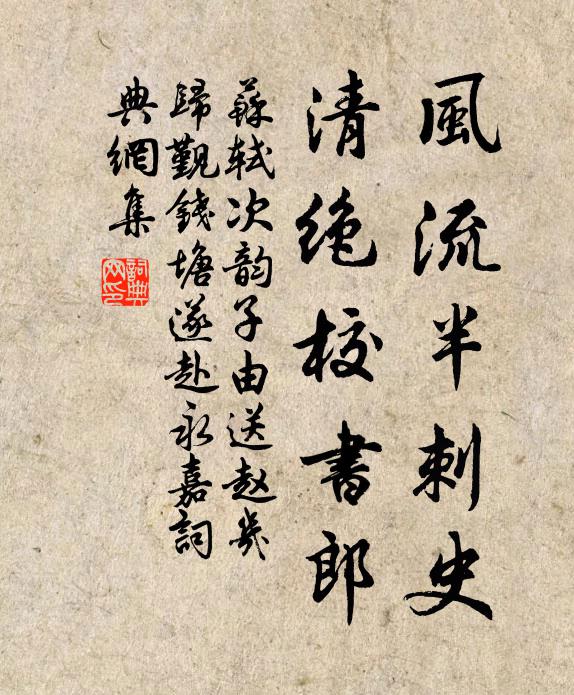 風流半刺史
清絕校書郎
蘇軾次韵子由送赵㡬
歸觐錢塘遂赴永嘉詞
典網集
詞典
网印